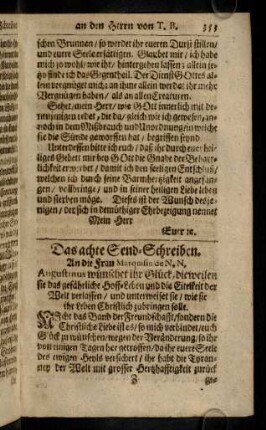 an den Herrn von T. B. 353
schen Brunnen / so werdet ihr eueren Durst stillen /
und euere Seele ersättigen. Glaubet mir / ich habe
mich so wohl / wie ihr / hintergehen lassen / allein je-
tzo finde ich das Gegentheil. Der Dienst Gottes al-
lein vergnüget mich: an ihme allein werdet ihr mehr
Vergnügen haben / als an allen Creaturen.
Sehet / mein Herr / wie GOtt innerlich mit dem-
jenigen redet / die da / gleich wie ich gewesen / an-
noch in dem Mißbrauch und Unordnung / in welche
sie die Sünde geworffen hat / begriffen seynd.
Unterdessen bitte ich euch / daß ihr durch euer hei-
liges Gebett mir bey GOtt die Gnade der Behar-
lichkeit erwerbet / damit ich den seeligen Entschluß /
welchen ich durch seine Barmhertzigkeit angefan-
gen / vollbringe / und in seiner heiligen Liebe leben
und sterben möge. Dieses ist der Wunsch desje-
nigen / der sich in demüthiger Ehrbezeigung nennet
Mein Herr
Euer ꝛc.
Das achte Send-Schreiben.
An die Frau Marquisin de N. N.
Augustinus wünschet ihr Glück / dieweilen
sie das gefährliche Hoff-Leben und die Eitelkeit der
Welt verlassen / und unterweiset sie / wie sie
ihr Leben Christlich zubringen solle.
NIcht das Band der Freundschafft / sondern die
Christliche Liebe ist es / so mich verbindet / euch
Glück zu wünschen / wegen der Veränderung / so ihr
von einigen Tagen her getroffen / da ihr euere Seele
des ewigen Heyls versichert / ihr habt die Tyran-
ney der Welt mit grosser Hertzhafftigkeit zurück
Z ge-